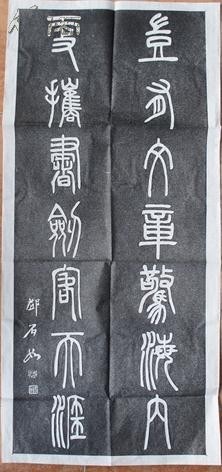 豈有文章驚海內
更攜書劍客天涯
鄧石如